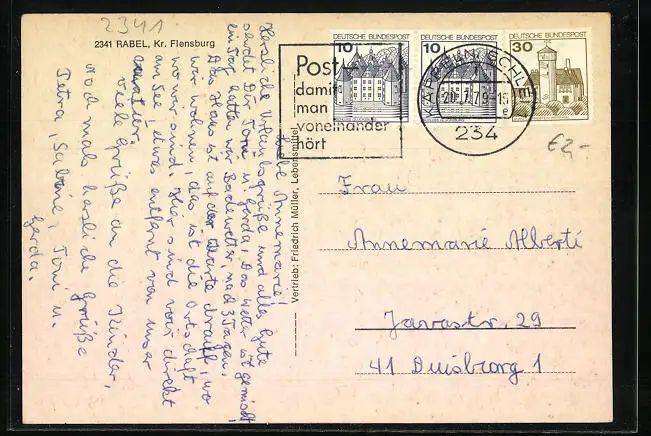 2341
2341 RABEL, Kr. Flensburg
Liebe Annemarie!
Herzliche Urlaubsgrüße und alles Gute
sendet Dir Toni u. Gerda. Das Wetter ist gemischt,
ein Tag hatten wir Badewetter, nach 3 Tagen.
Das Haus ist auf der Karte drauf, wo
wir wohnen, das ist die Ortschaft
wo wir sind. Hier sind wir direkt
am See, etwas entfernt von unser
Viele Grüße an die Kinder,
noch mals herzliche Grüße
Petra, Sabine, Toni u.
Gerda.
Vertrieb: Friedrich Müller, Lebensmittel
Post
damit
man
voneinander
hört
DEUTSCHE BUNDESPOST
10
DEUTSCHE BUNDESPOST
10
DEUTSCHE BUNDESPOST
30
KAPPELN, SCHLEI
20.7.79-15
234
€2,-
Frau
Annemarie Alberti
Javastr. 29
41 Duisbrog 1